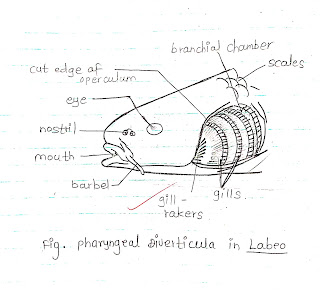 branchial chamber
cut edge of
operculum
scales
eye
nostril
mouth
barbel
gill-
rakers
gills
Fig. pharyngeal Diverticula in Labeo